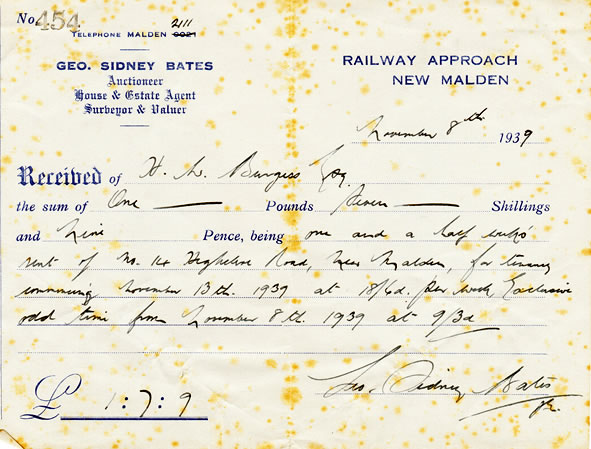 No. 454.
2111
TELEPHONE MALDEN 0021
GEO. SIDNEY BATES
Auctioneer
House & Estate Agent
Surveyor & Valuer
RAILWAY APPROACH
NEW MALDEN
November 8th. 1939
Received of H. L. Burgess Esq.
the sum of One Pounds Seven Shillings
and Nine Pence, being one and a half week's
rent of No. 14 Road, New Malden, for tenancy
commencing November 13th. 1939 at 18/6d. per week, Exclusive
odd time from November 8th. 1939 at 9/3d
£ 1:7:9
Geo. Sidney Bates